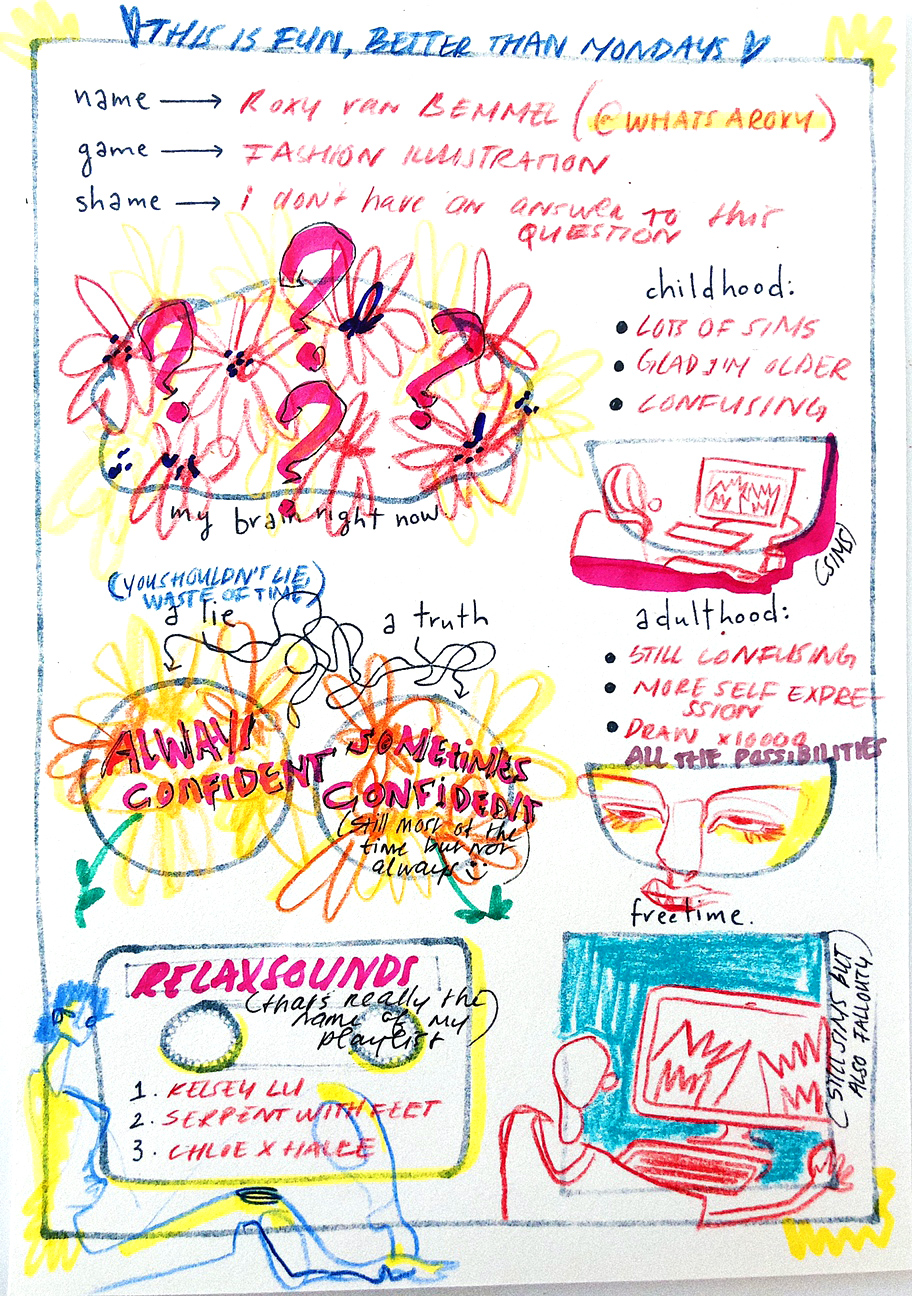 THIS IS FUN, BETTER THAN MONDAYS
name → ROXY van BEMMEL (@WHATSAROXY)
game → FASHION ILLUSTRATION
shame → i don't have an answer to this
QUESTION
? ? ? ?
my brain right now
childhood:
• LOTS OF SIMS
• GLAD I'M OLDER
• CONFUSING
(SIMS)
(YOU SHOULDN'T LIE,
WASTE OF TIME)
a lie
a truth
ALWAYS
CONFIDENT
SOMETIMES
CONFIDENT
(still most of the
time but not
always :)
adulthood:
• STILL CONFUSING
• MORE SELF EXPRE-
SSION
• DRAW x10000
ALL THE POSSIBILITIES
free time.
(STILL SIMS BUT
ALSO FALLOUT)
RELAXSOUNDS
(that's really the
name of my
playlist)
1. KELSEY LU
2. SERPENT WITH FEET
3. CHLOE X HALLE